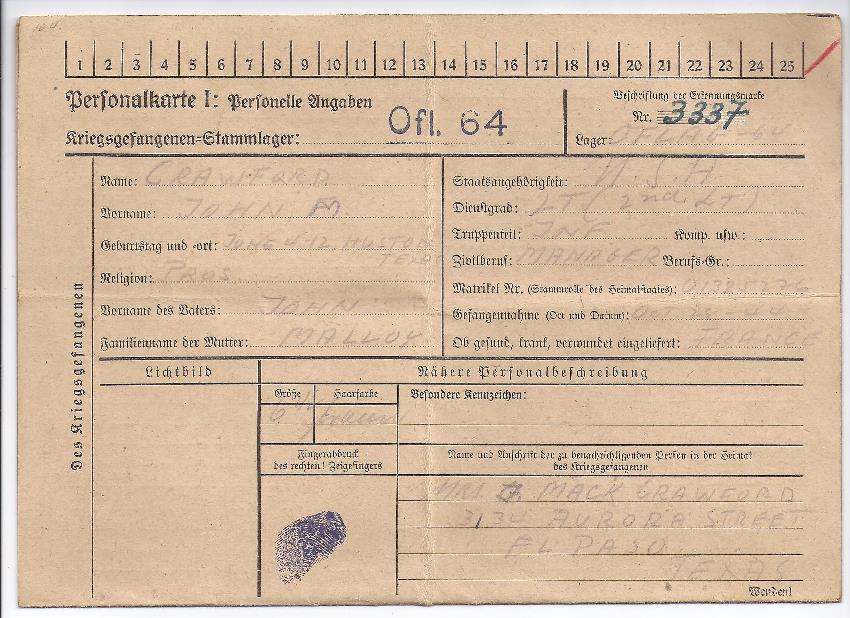 1 2 3 4 5 6 7 8 9 10 11 12 13 14 15 16 17 18 19 20 21 22 23 24 25
Personalkarte I: Personelle Angaben
Kriegsgefangenen-Stammlager: Ofl. 64
Beschriftung der Erkennungsmarke
Nr. 3337
Lager: OFLAG 64
Des Kriegsgefangenen
Name: CRAWFORD
Vorname: JOHN M.
Geburtstag und -ort: JUNE 4 12. HUSTON
TEXAS
Religion:
Vorname des Vaters: JOHN
Familienname der Mutter: MALLOY
Staatsangehörigkeit: U.S.A
Dienstgrad: LT (2nd LT)
Truppenteil: INF Komp. usw.:
Zivilberuf: MANAGER Berufs-Gr.:
Matrikel Nr. (Stammrolle des Heimatstaates):
Gefangennahme (Ort und Datum): 44
Ob gesund, krank, verwundet eingeliefert:
Lichtbild
Nähere Personalbeschreibung
Größe Haarfarbe Besondere Kennzeichen:
Fingerabdruck
des rechten! Zeigefingers
Name und Anschrift der zu benachrichtigenden Person in der Heimat
des Kriegsgefangenen
MRS J. MACK CRAWFORD
3134 AURORA STREET
EL PASO
TEXAS
Wenden!